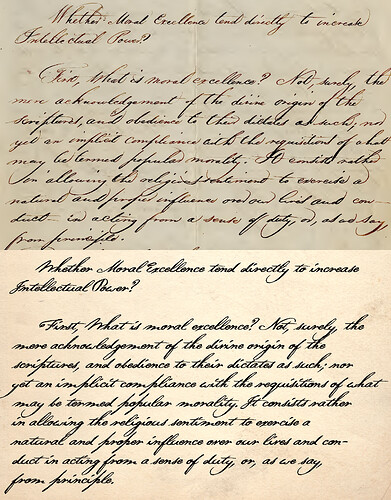 Whether Moral Excellence tend directly to increase
Intellectual Power?
First, What is moral excellence? Not, surely, the
mere acknowledgement of the divine origin of the
scriptures, and obedience to their dictates as such; nor
yet an implicit compliance with the requisitions of what
may be termed popular morality. It consists rather
in allowing the religious sentiment to exercise a
natural and proper influence over our lives and con-
duct in acting from a sense of duty, or, as we say
from principle.
Whether Moral Excellence tend directly to increase
Intellectual Power?
First, What is moral excellence? Not, surely, the
mere acknowledgement of the divine origin of the
scriptures, and obedience to their dictates as such; nor
yet an implicit compliance with the requisitions of what
may be termed popular morality. It consists rather
in allowing the religious sentiment to exercise a
natural and proper influence over our lives and con-
duct in acting from a sense of duty, or, as we say
from principle.